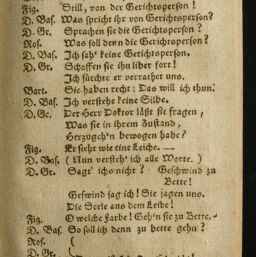 Fig. Still, von der Gerichtsperson!
D. Bas. Was spricht ihr von Gerichtsperson?
D. Gr. Sprachen sie die Gerichtsperson?
Ros. Was soll denn die Gerichtsperson?
D. Bas. Ich sah' keine Gerichtsperson.
D. Gr. Schaffen sie ihn lieber fort!
Ich fürchte er verrathet uns.
Bart. Sie haben recht: Das will ich thun.
D. Bas. Ich verstehe keine Silbe.
D. Gr. Der Herr Doktor läßt sie fragen,
Was sie in ihrem Zustand,
Herzugeh'n bewogen habe?
Fig. Er sieht wie eine Leiche. —
D. Bas. (Nun versteh' ich alle Worte.)
D. Gr. Sagt' ichs nicht? Geschwind zu
Bette!
Geswind sag ich! Sie jagen uns.
Die Seele aus dem Leibe!
Fig. O welche Farbe! Geh'n sie zu Bette.-
D. Bas. So soll ich denn zu bette gehn?
Ros. (
D. Gr. (